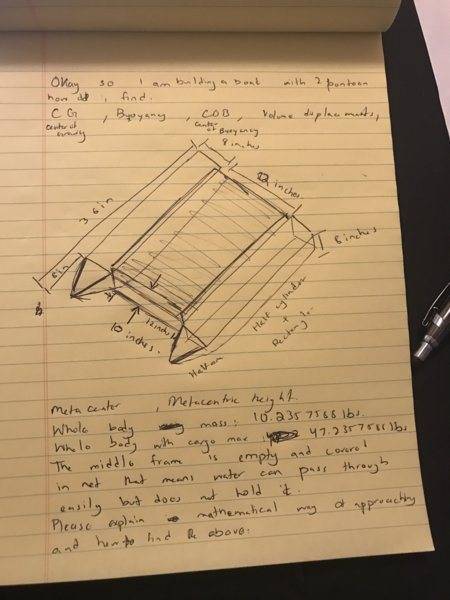 Okay so I am building a boat with 2 pontoon
how do i, find.
CG, Buoyancy, COB, Volume displacements,
center of gravity
center of Buoyancy
8 inches
36 in
22 inches
8 inches
8in
10 inches.
12 inches
Half cylinder
+
Rectangle
Meta center, Metacentric height.
Whole body mass: 10.2357568 lbs.
Whole body with cargo max: 47.2357568 lbs.
The middle frame is empty and coverd
in net that means water can pass through
easily but does not hold it.
Please explain mathematical way of approaching
and how to find the above.